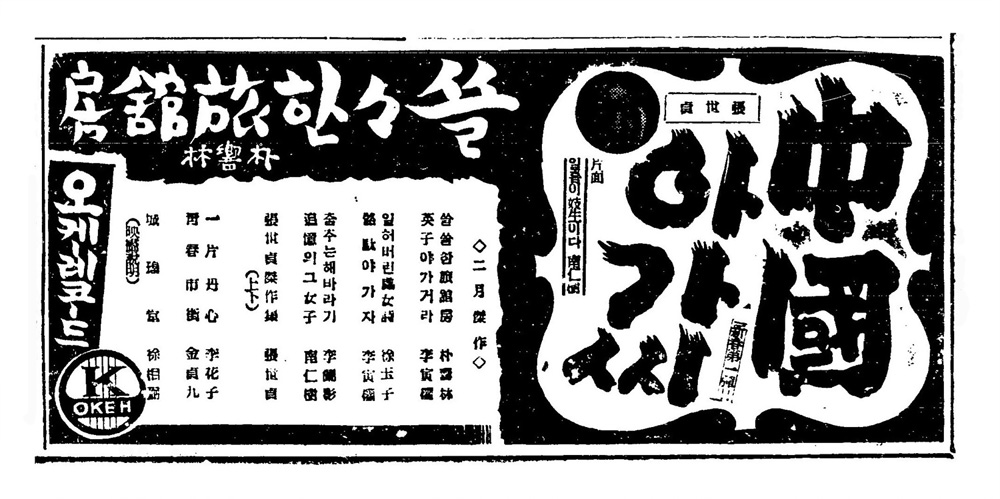 中國
아가씨
張世貞
片面
일홈이 妓生이다 南仁樹
쓸々한旅館房
朴響林
◇二月傑作◇
쓸쓸한旅館房 朴響林
英子야가거라 李寅權
일허버린處女詩 徐玉子
駱駝야가자 李寅權
춤추는해바라기 李蘭影
追憶의그女子 南仁樹
張世貞傑作集(上下) 張世貞
一片丹心 李花子
靑春市街 金貞九
城隍堂
(映畵說明)
오케레코-드
K
OKEH